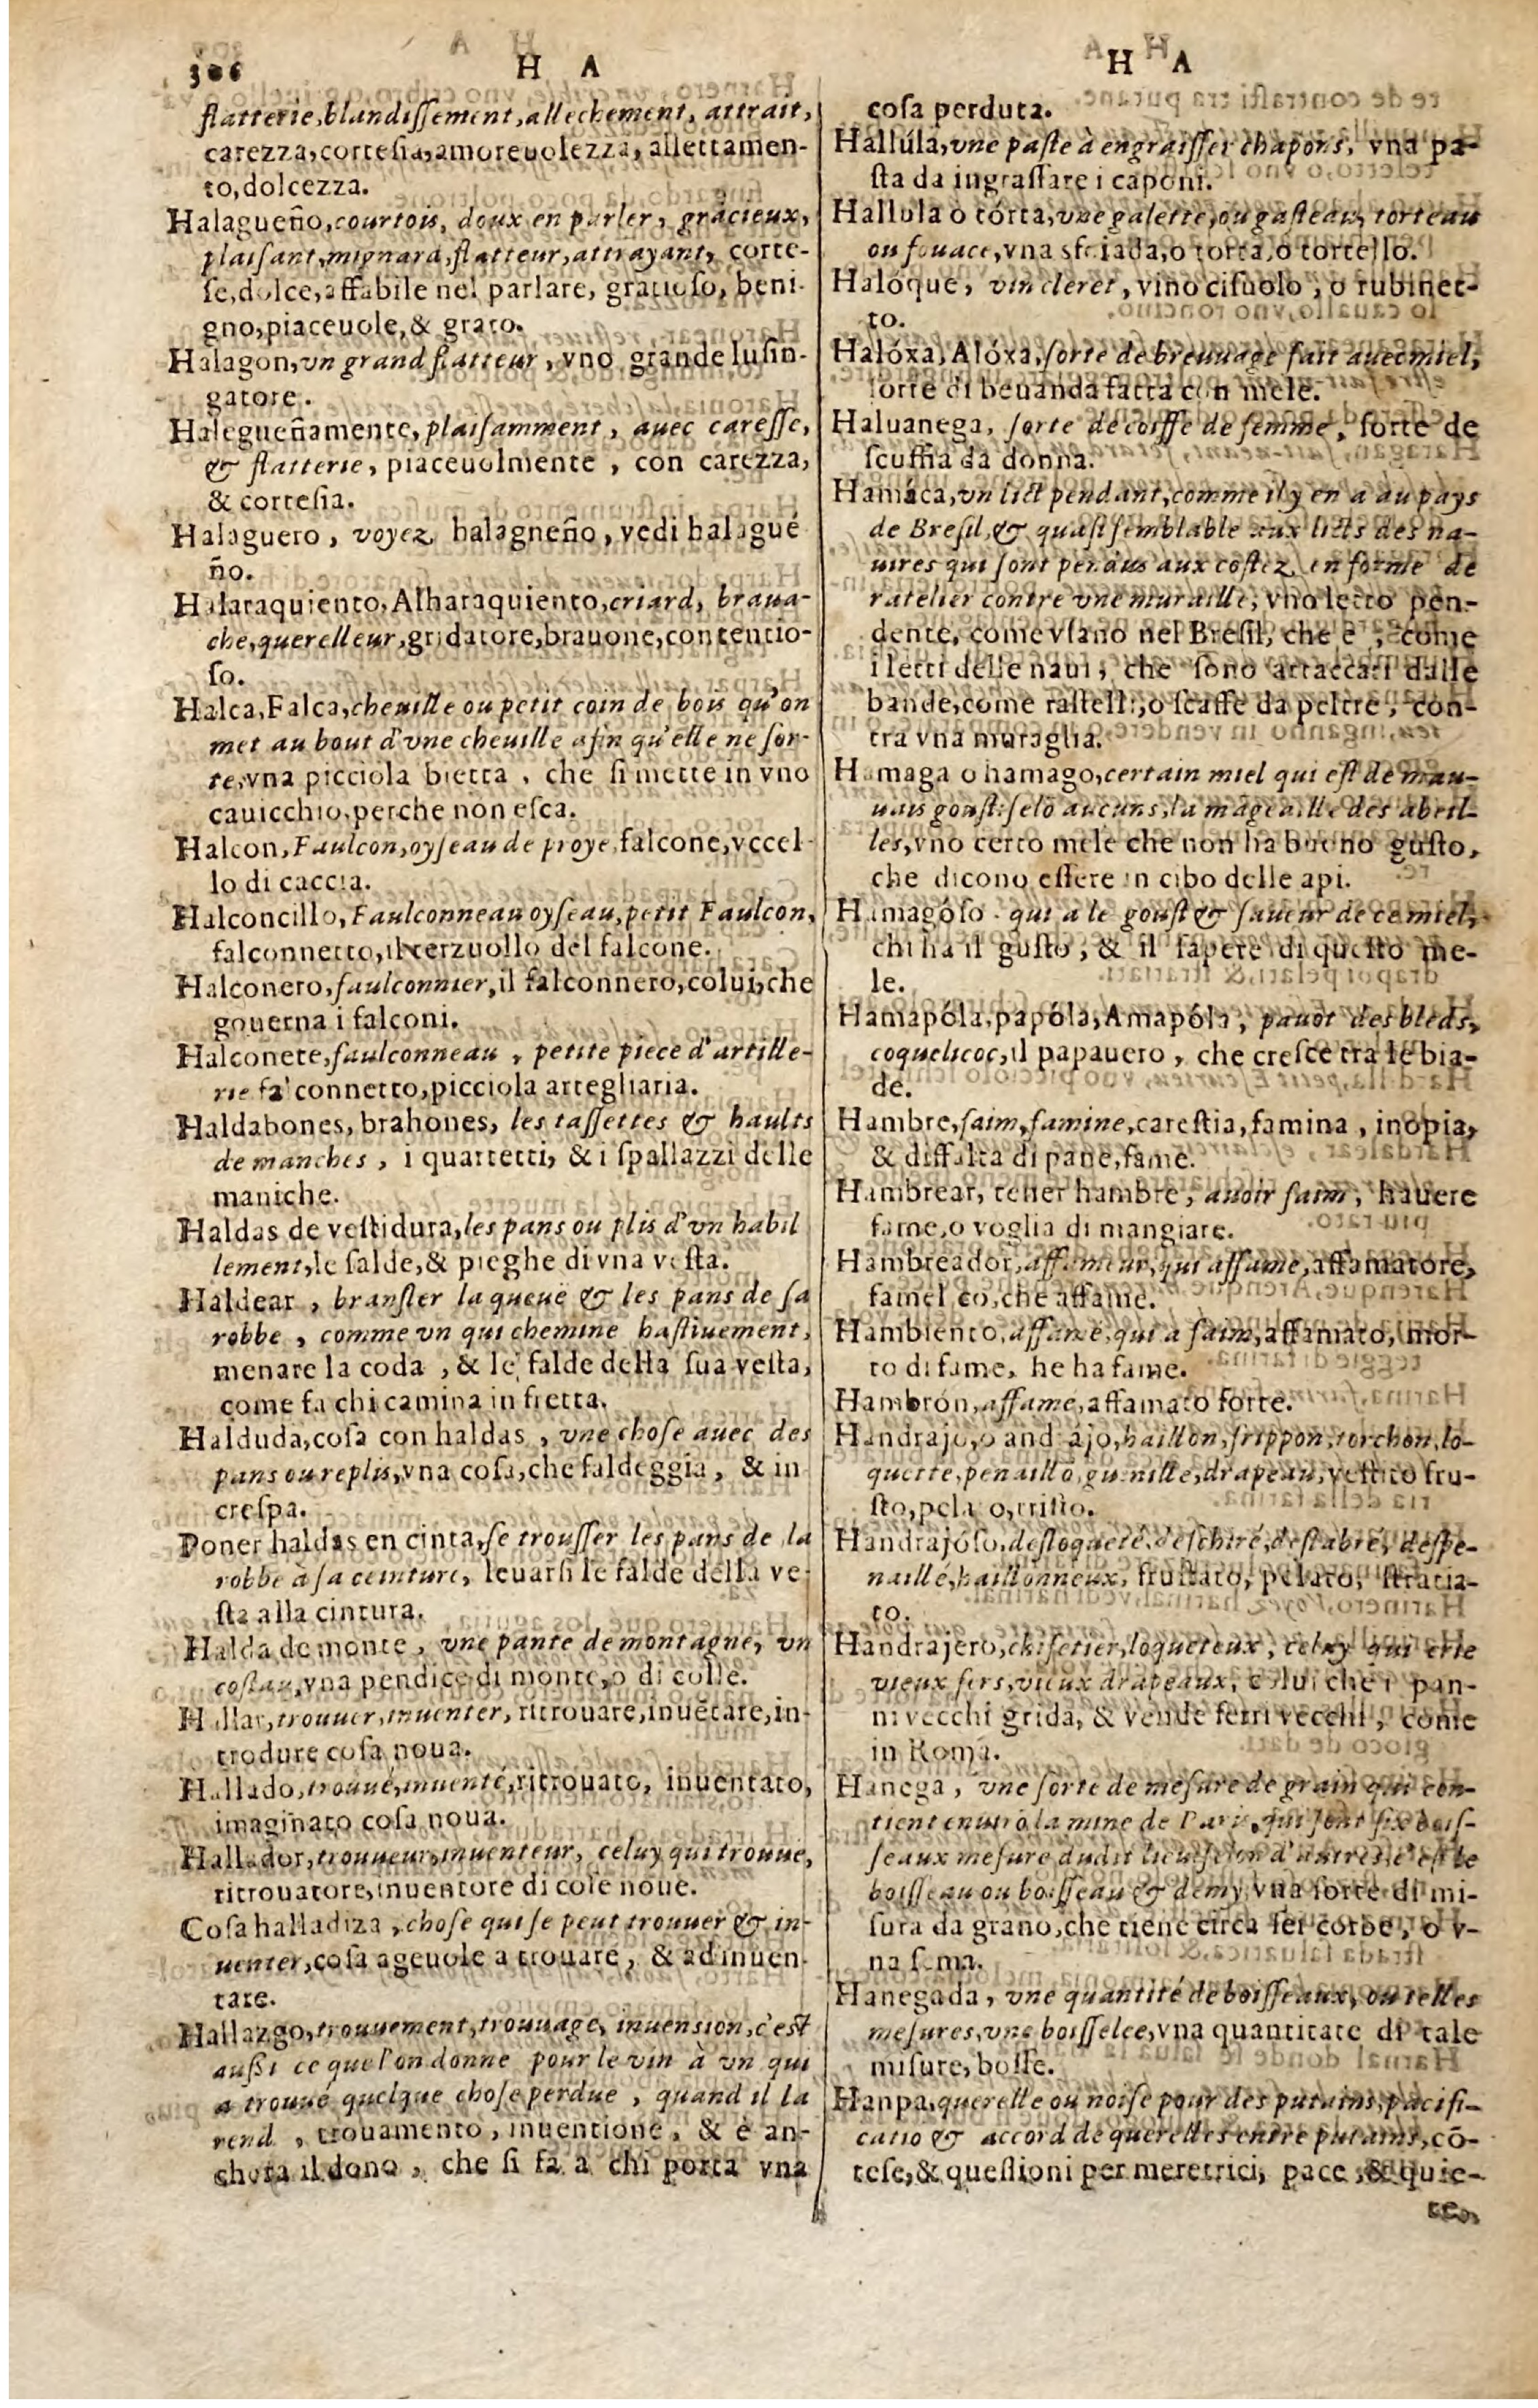 306 H A
flatterie, blandiſſement, allechement, attrait,
carezza, corteſia, amoreuolezza, allettamen-
to, dolcezza.
Halagueño, courtois, doux en parler, gracieux,
plaiſant, mignard, flatteur, attrayant, corte-
ſe, dolce, affabile nel parlare, gratioſo, beni-
gno, piaceuole, & grato.
Halagon, vn grand flatteur, vno grande luſin-
gatore.
Halegueñamente, plaiſamment, auec careſſe,
& flatterie, piaceuolmente, con carezza,
& corteſia.
Halaguero, voyez halagneño, vedi halagué
ño.
Halaraquiento, Alharaquiento, criard, braua-
che, querelleur, gridatore, brauone, contentio-
ſo.
Halca, Falca, cheuille ou petit coin de bois qu'on
met au bout d'vne cheuille afin qu'elle ne ſor-
te, vna picciola bietta, che ſi mette in vno
cauicchio, perche non eſca.
Halcon, Faulcon, oyſeau de proye, falcone, vccel-
lo di caccia.
Halconcillo, Faulconneau oyſeau, petit Faulcon,
falconnetto, il terzuollo del falcone.
Halconero, faulconnier, il falconnero, colui, che
gouerna i falconi.
Halconete, faulconneau, petite piece d'artille-
rie fa'connetto, picciola artegliaria.
Haldabones, brahones, les taſſettes & haults
de manches, i quartetti, & i ſpallazzi delle
maniche.
Haldas de veſtidura, les pans ou plis d'vn habil
lement, le falde, & pieghe di vna veſta.
Haldear, branſler la queuë & les pans de ſa
robbe, comme vn qui chemine haſtiuement,
menare la coda, & le falde della ſua veſta,
come fa chi camina in fretta.
Halduda, coſa con haldas, vne choſe auec des
pans ou replis, vna coſa, che faldeggia, & in
creſpa.
Poner haldas en cinta, ſe trouſſer les pans de la
robbe à ſa ceinture, leuarſi le falde della ve-
ſta alla cintura.
Halda de monte, vne pante de montagne, vn
coſtau, vna pendice di monte, o di colle.
Hallar, trouuer, inuenter, ritrouare, inuẽtare, in-
trodure coſa noua.
Hallado, trouué, inuenté, ritrouato, inuentato,
imaginato coſa noua.
Hallador, trouueur, inuenteur, celuy qui trouue,
ritrouatore, inuentore di coſe noue.
Coſa halladiza, choſe qui ſe peut trouuer & in-
uenter, coſa ageuole a trouare, & ad inuen-
tare.
Hallazgo, trouuement, trouuage, inuension, c'est
außi ce que l'on donne pour le vin à vn qui
a trouué quelque choſe perdue, quand il la
rend, trouamento, inuentione, & è an-
chora il dono, che ſi fa a chi porta vna
H A
coſa perduta.
Hallúla, vne paſte à engraiſſer chapons, vna pa-
ſta da ingraſſare i caponi.
Hallula o tórta, vne galette, ou gaſteau, torteau
ou fouace, vna sfoiada, o torta, o tortello.
Halóque, vin cleret, vino ciſuolo, o rubinet-
to.
Halóxa, Alóxa, ſorte de breuuage fait auec miel,
ſorte di beuanda fatta con mele.
Haluanega, ſorte de coiffe de femme, ſorte de
ſcuffia da donna.
Hamáca, vn lict pendant, comme il y en a au pays
de Breſil, & quaſi ſemblable aux licts des na-
uires qui ſont pendus aux coſtez en forme de
ratelier contre vne muraille, vno letto pen-
dente, come vſano nel Breſil, che è, come
i letti delle naui, che ſono attaccati dalle
bande, come raſtelli, o ſcaffe da peltre, con-
tra vna muraglia.
Hamaga o hamago, certain miel qui eſt de mau-
uais gouſt: ſelõ aucuns, la mãgeaille des abeil-
les, vno certo mele che non ha buono guſto,
che dicono eſſere in cibo delle api.
Hamagóſo. qui a le gouſt & ſaueur de ce miel,
chi ha il guſto, & il ſapere di queſto me-
le.
Hamapóla, papóla, Amapóla, pauot des bleds,
coquelicoc, il papauero, che creſce tra le bia-
de.
Hambre, faim, famine, careſtia, famina, inopia,
& diffalta di pane, fame.
Hambrear, tener hambre, auoir faim, hauere
fame, o voglia di mangiare.
Hambreador, affameur, qui affame, affamatore,
famel co, che affame.
Hambiento, affamé, qui a faim, affamato, mor-
to di fame, he ha fame.
Hambrón, affame, affamato forte.
Handrajo, o andrájo, haillon, frippon, torchon, lo-
quette, penaillõ, guenille, drapeau, veſtito fru-
ſto, pelato, triſto.
Handrajóſo, deſloqueté, deſchiré, deſlabré, deſpe-
naillé, haillonneux, fruſtato, pelato, ſtratia-
to.
Handrajero, chiſetier, loqueteux, celuy qui crie
vieux fers, vieux drapeaux, colui che i pan-
ni vecchi grida, & vende ferri vecchi, come
in Roma.
Hanega, vne ſorte de meſure de grain qui con-
tient enuirõ la mine de Paris, qui ſont ſix boiſ-
ſeaux meſure dudit lieu: ſelon d'autres c'eſt le
boiſſeau ou boiſſeau & demy, vna ſorte di mi-
ſura da grano, che tiene circa ſei corbe, o v-
na ſoma.
Hanegada, vne quantité de boiſſeaux, ou telles
meſures, vne boiſſelee, vna quantitate di tale
miſure, boſſe.
Hanpa, querelle ou noiſe pour des putains, pacifi-
catiõ & accord de querelles entre putains, cõ-
teſe, & queſtioni per meretrici, pace, & quie-
te,